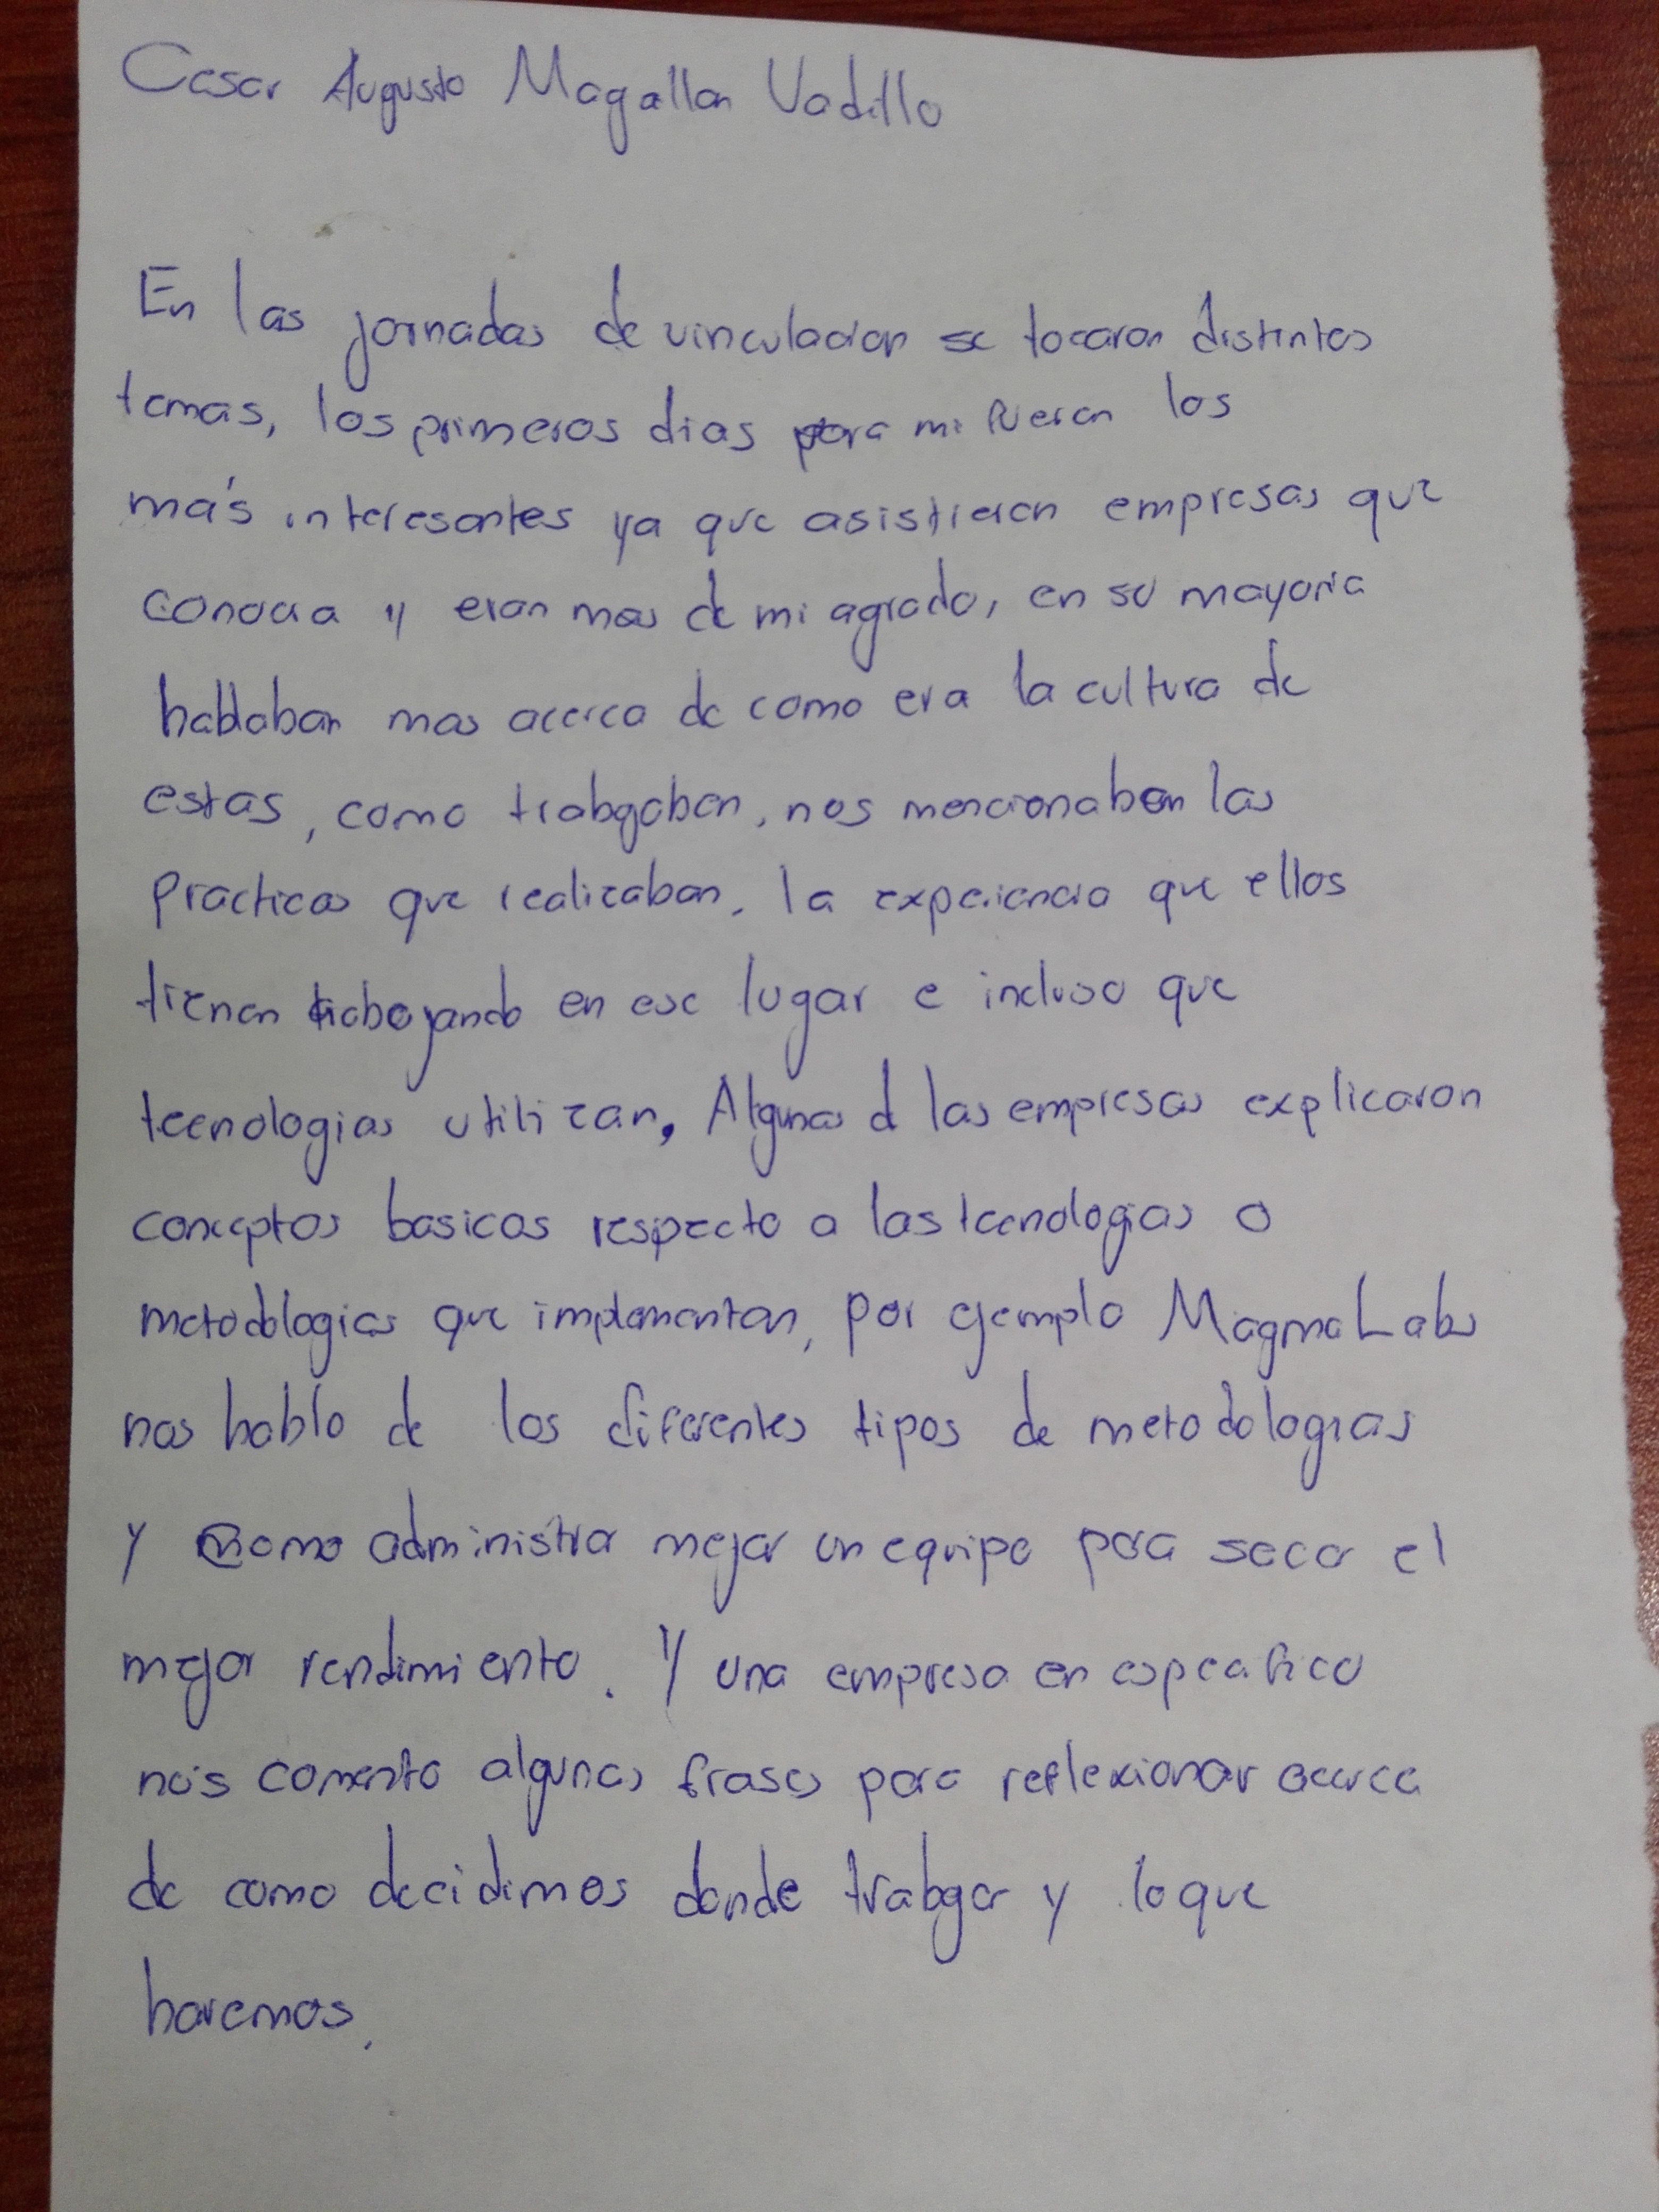 Cesar Augusto Magallan Vadillo
En las jornadas de vinculacion se tocaron distintos
temas, los primeros dias para mi fueron los
más interesantes ya que asistieron empresas que
conocia y eran mas de mi agrado, en su mayoria
hablaban mas acerca de como era la cultura de
estas, como trabajaban, nos mencionaban las
practicas que realizaban, la experiencia que ellos
tienen trabajando en ese lugar e incluso que
tecnologias utilizan, Algunas d las empresas explicaron
conceptos basicos respecto a las tecnologias o
metodologias que implementan, por ejemplo MagmaLabs
nos hablo de los diferentes tipos de metodologias
y como administrar mejor un equipo para sacar el
mejor rendimiento. Y una empresa en especifico
nos comento algunas frases para reflexionar acerca
de como decidimos donde trabajar y lo que
haremos.